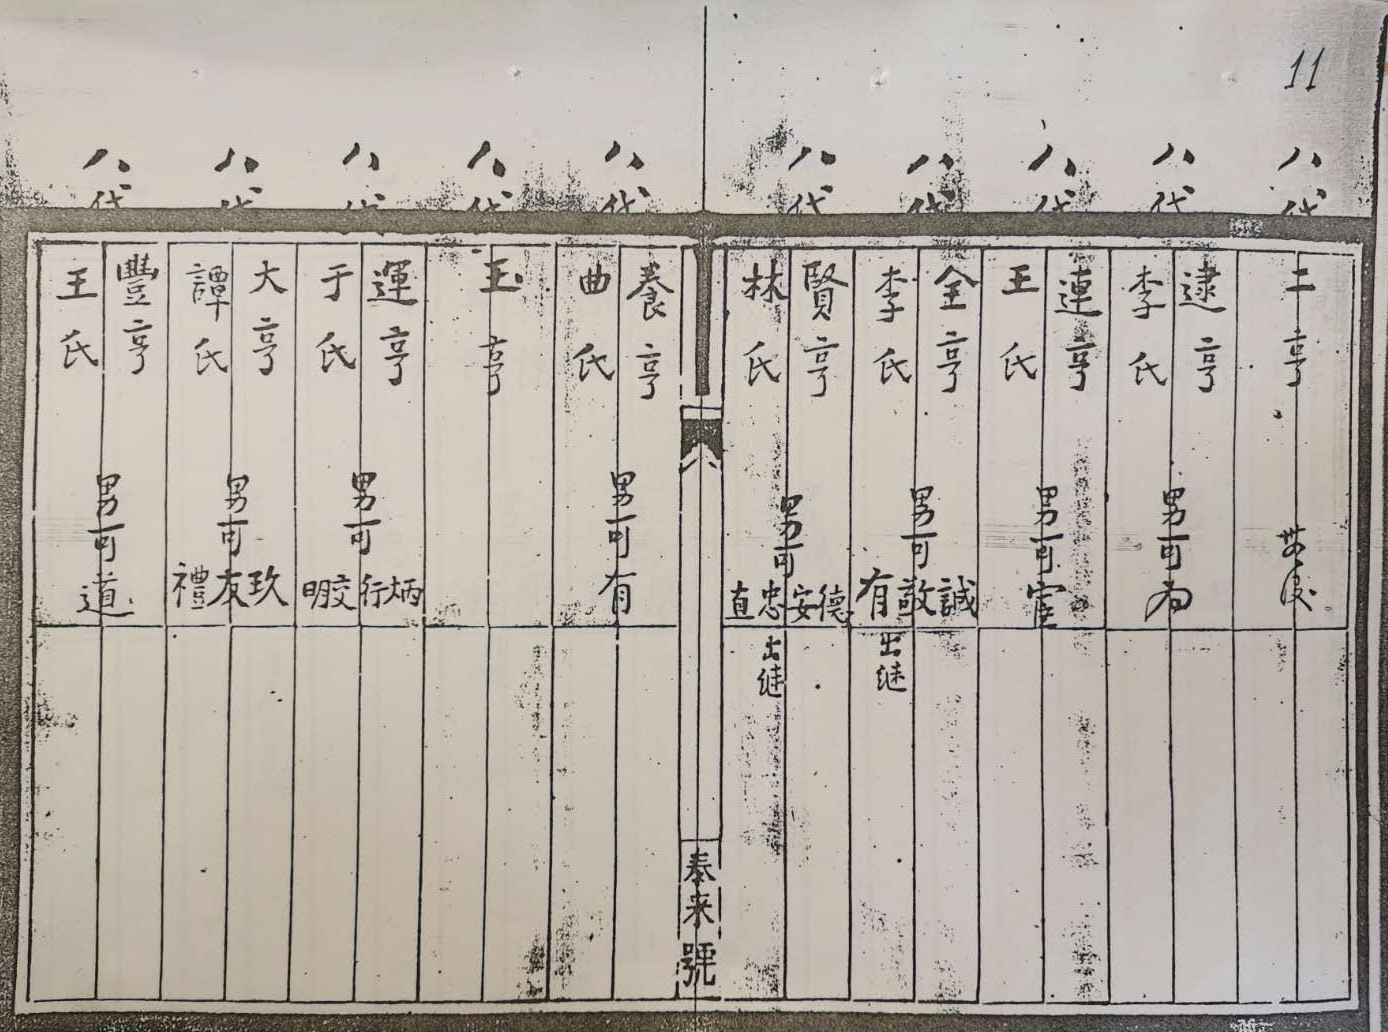 11
八代
二亨
无後
八代
逮亨
李氏
男可為
八代
連亨
王氏
男可
八代
全亨
李氏
男可
誠敬有
出継
八代
賢亨
林氏
男可
德安忠直
出継
奉来號
八代
養亨
曲氏
男可有
八代
玉亨
八代
運亨
于氏
男可
炳行交明
八代
大亨
譚氏
男可
玖友禮
八代
豐亨
王氏
男可道